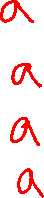 a
a
a
a